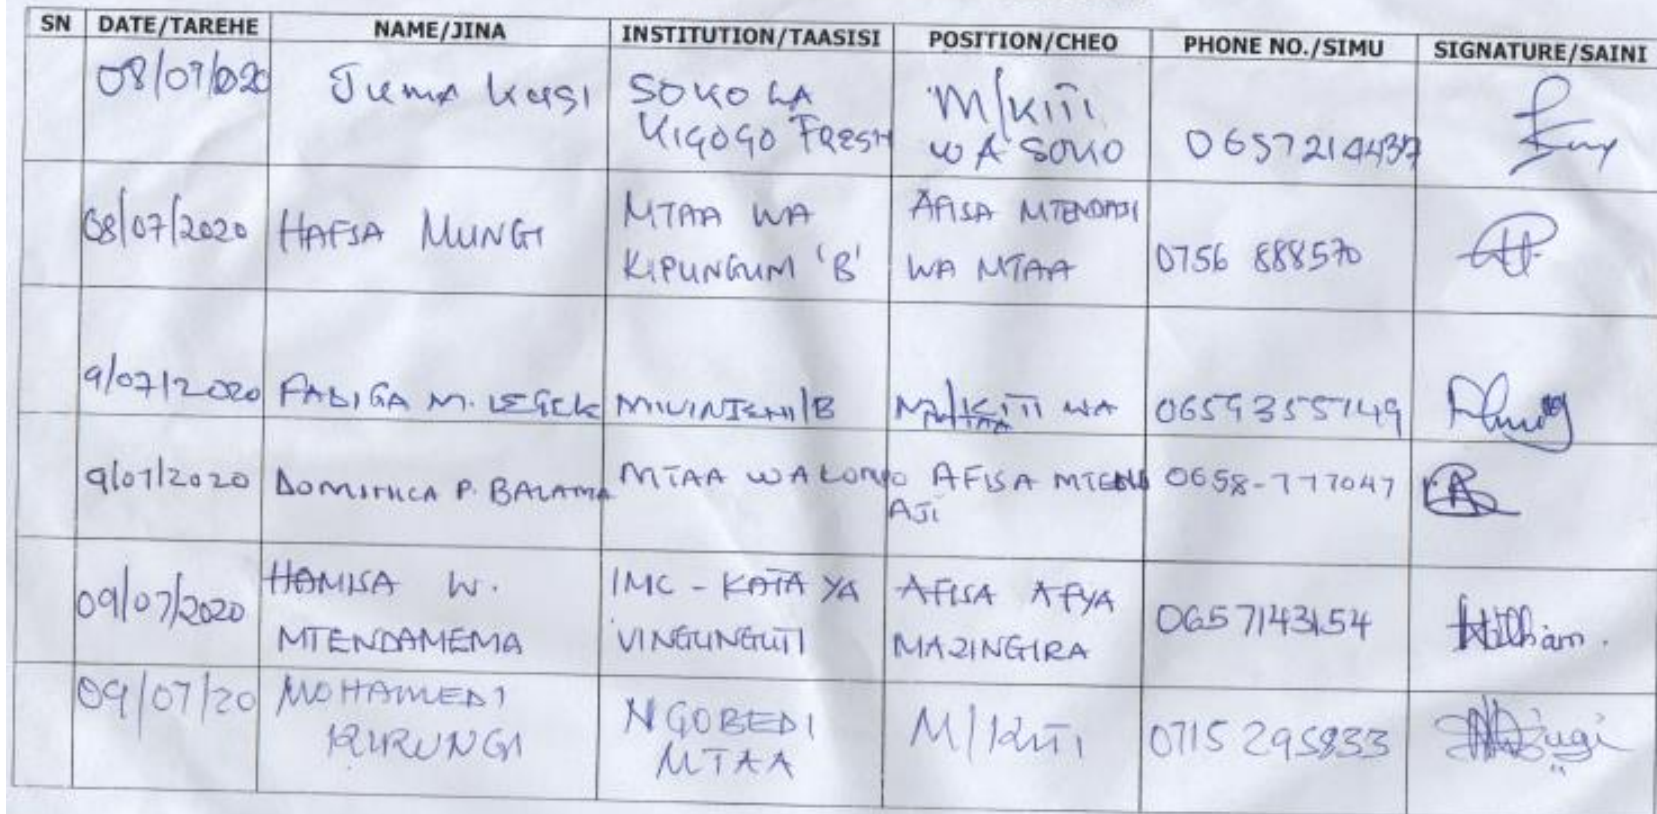 SN DATE/TAREHE NAME/JINA INSTITUTION/TAASISI POSITION/CHEO PHONE NO./SIMU SIGNATURE/SAINI
08/07/2020 Juma SOKO LA KIGOGO FRESH M/KITI WA SOKO
08/07/2020 HAFSA MUNGI MTAA WA KIPUNGUNI 'B' AFISA MTENDAJI WA MTAA 0756 888570
9/07/2020 M. M/KITI WA MTAA 0659355749
9/07/2020 P. BALAMA MTAA WA AFISA MTEND AJI 0658-777047
09/07/2020 HAMISA W. MTENDAMEMA IMC - KATA YA VINGUNGUTI AFISA AFYA MAZINGIRA 0657143154
09/07/20 MOHAMEDI KURUNGI NGOBEDI MTAA M/KITI 0715 295833